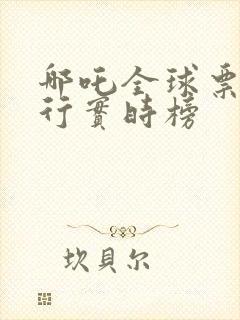 哪吒全球票
行實時榜
坎貝尔